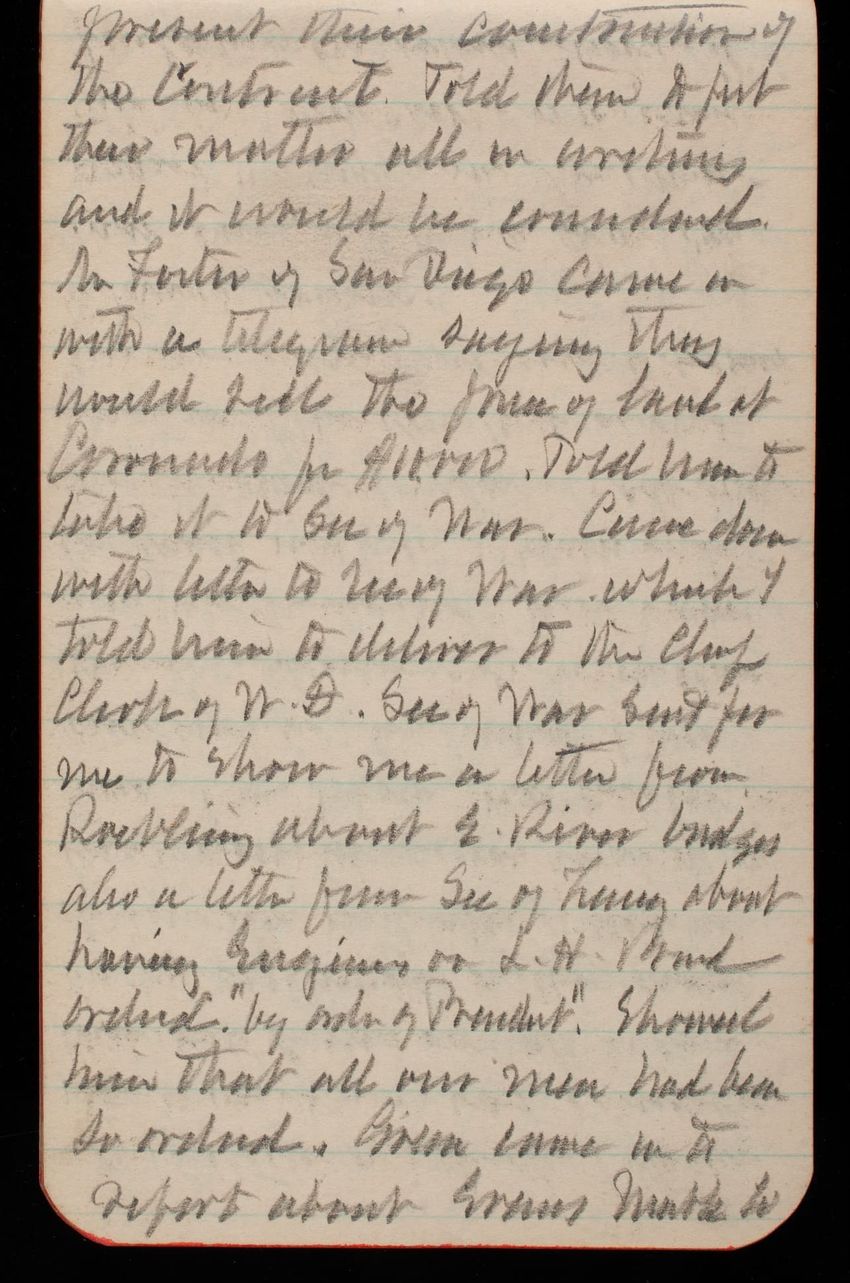 present their construction of
the Contract. Told them to put
their matter all in writing
and it would be considered.
Mr Foster of San Diego came in
with a telegram saying they
would sell the piece of land at
Coronado for. Told him to
take it to Sec of War. Came down
with letter to Sec of War. which I
told him to deliver to the Chief
Clerk of W.D. Sec of War sent for
me to show me a letter from
Roebling about E. River bridges
also a letter from Sec of Treasy about
having Engineers on L.H. Board
ordered "by order of President". Showed
him that all our men had been
so ordered. Green came in to
report about Evans